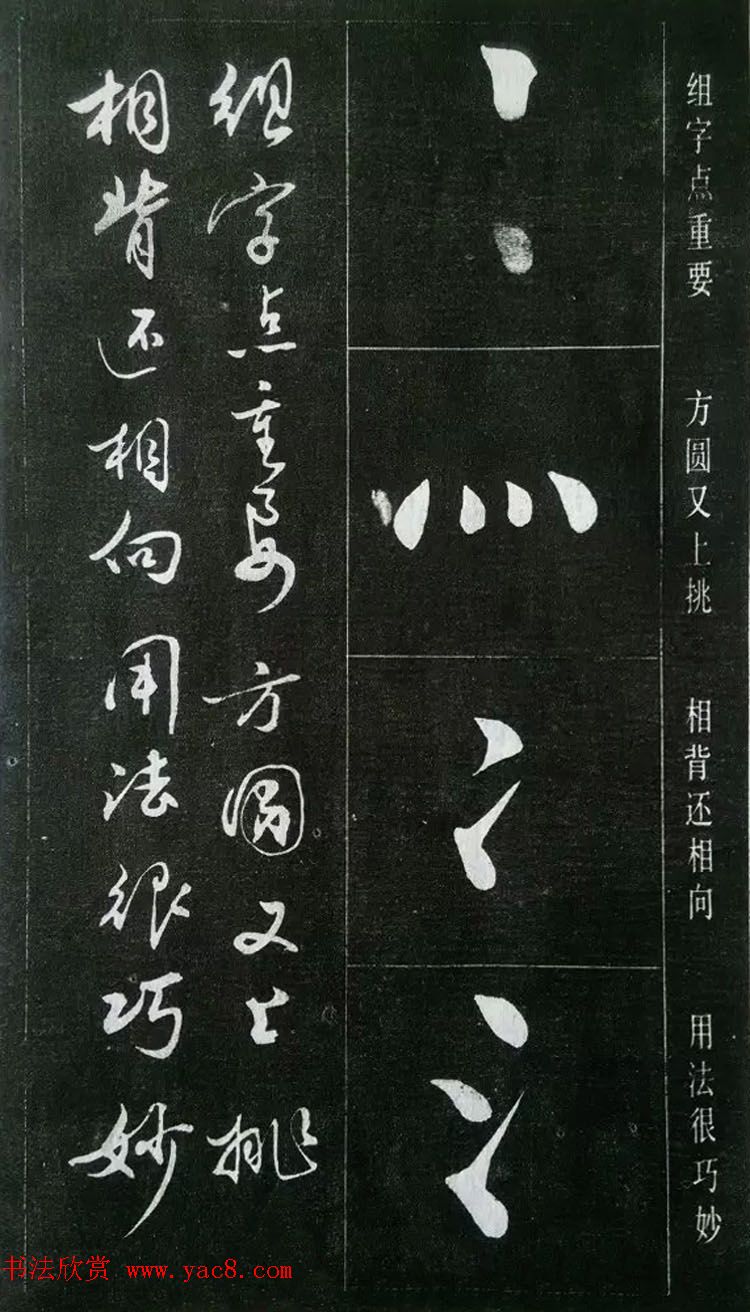 组字点重要 方圆又上挑 相背还相向 用法很巧妙
组字点重要方圆又上挑
相背还相向用法很巧妙
书法欣赏 www.yac8.com